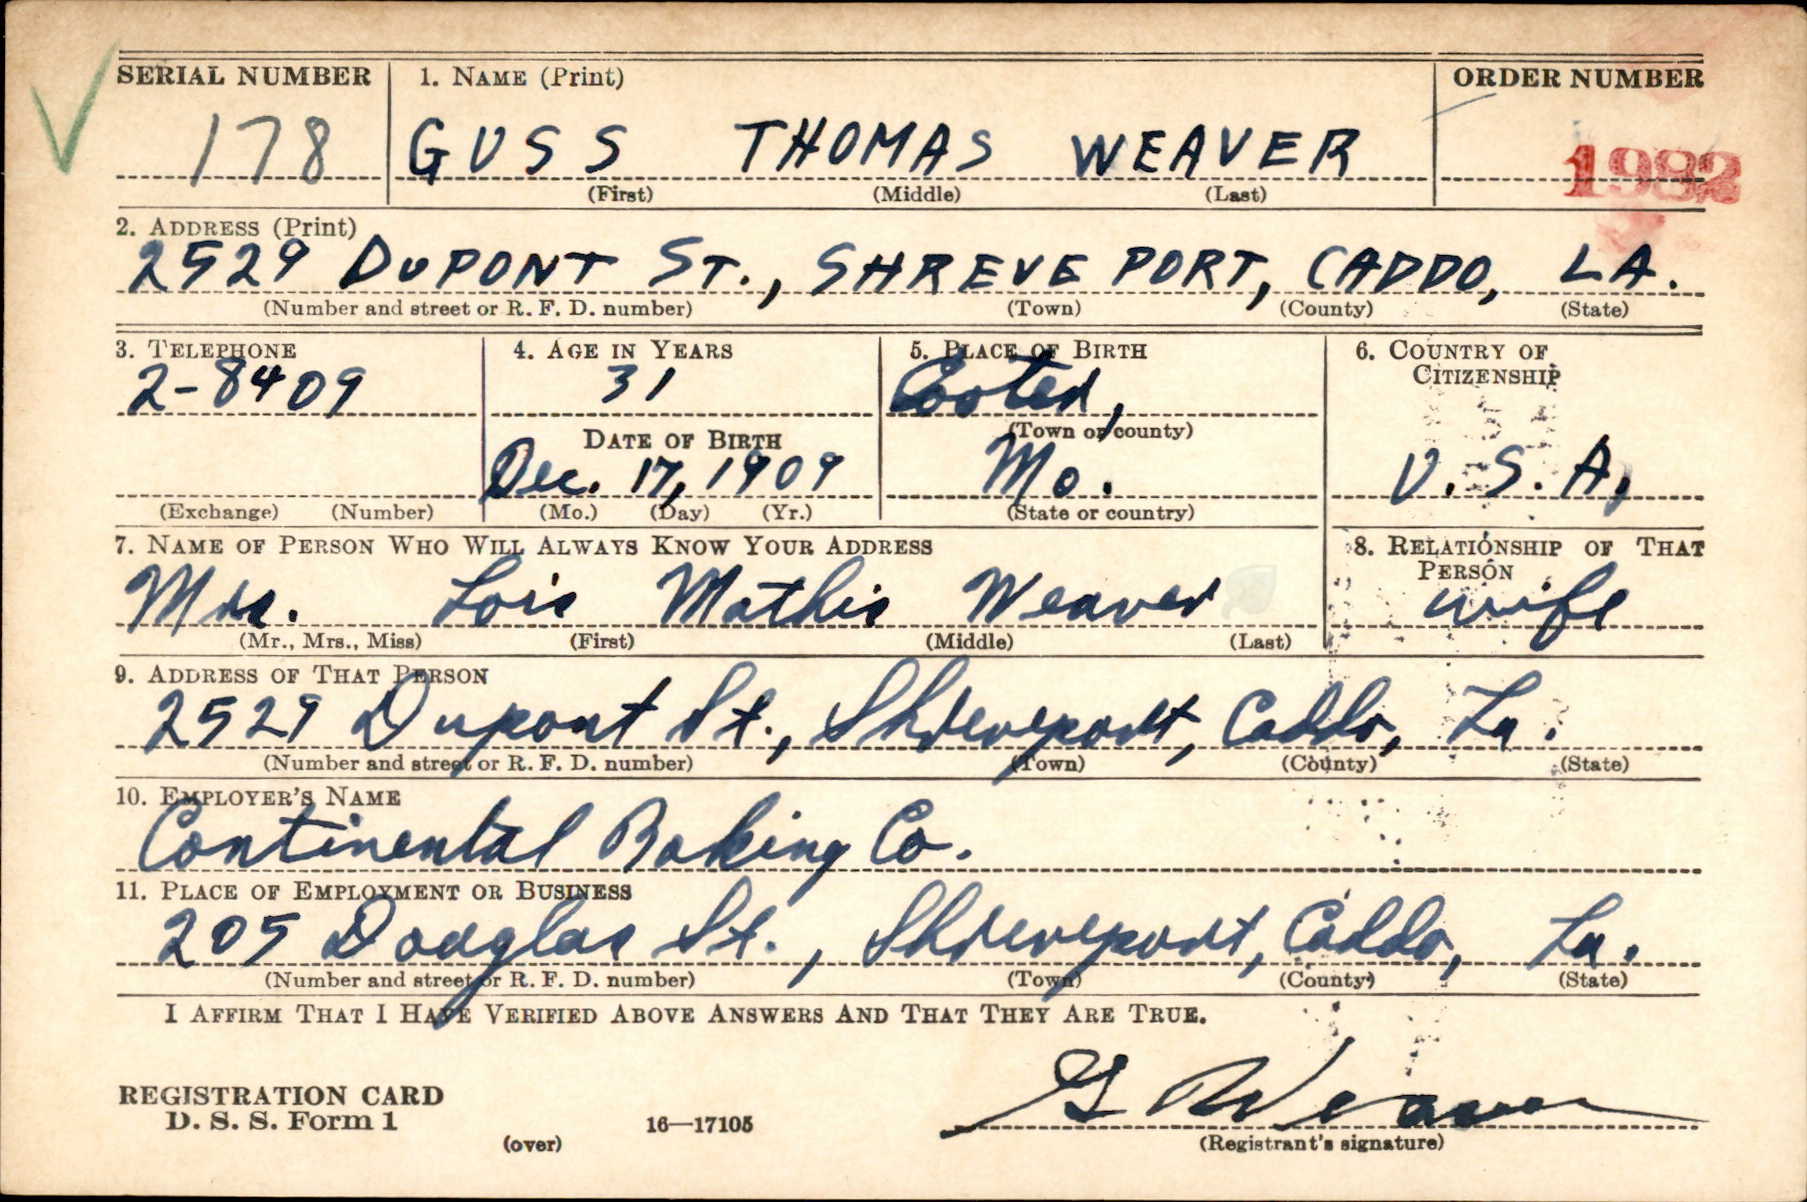 SERIAL NUMBER 1. NAME (Print) ORDER NUMBER
178 GUSS THOMAS WEAVER 1982
(First) (Middle) (Last)
2. ADDRESS (Print)
2529 DUPONT ST., SHREVEPORT, CADDO, LA.
(Number and street or R. F. D. number) (Town) (County) (State)
3. TELEPHONE 4. AGE IN YEARS 5. PLACE OF BIRTH 6. COUNTRY OF
CITIZENSHIP
2-8409 31 Cooter,
DATE OF BIRTH (Town or county)
Dec. 17, 1909 Mo. U. S. A.
(Exchange) (Number) (Mo.) (Day) (Yr.) (State or country)
7. NAME OF PERSON WHO WILL ALWAYS KNOW YOUR ADDRESS 8. RELATIONSHIP OF THAT
PERSON
Mrs. Lois Mathis Weaver wife
(Mr., Mrs., Miss) (First) (Middle) (Last)
9. ADDRESS OF THAT PERSON
2529 Dupont St., Shreveport, Caddo, La.
(Number and street or R. F. D. number) (Town) (County) (State)
10. EMPLOYER'S NAME
Continental Baking Co.
11. PLACE OF EMPLOYMENT OR BUSINESS
205 Douglas St., Shreveport, Caddo, La.
(Number and street or R. F. D. number) (Town) (County) (State)
I AFFIRM THAT I HAVE VERIFIED ABOVE ANSWERS AND THAT THEY ARE TRUE.
REGISTRATION CARD
D. S. S. Form 1 G Weaver
(over) 16—17105 (Registrant's signature)